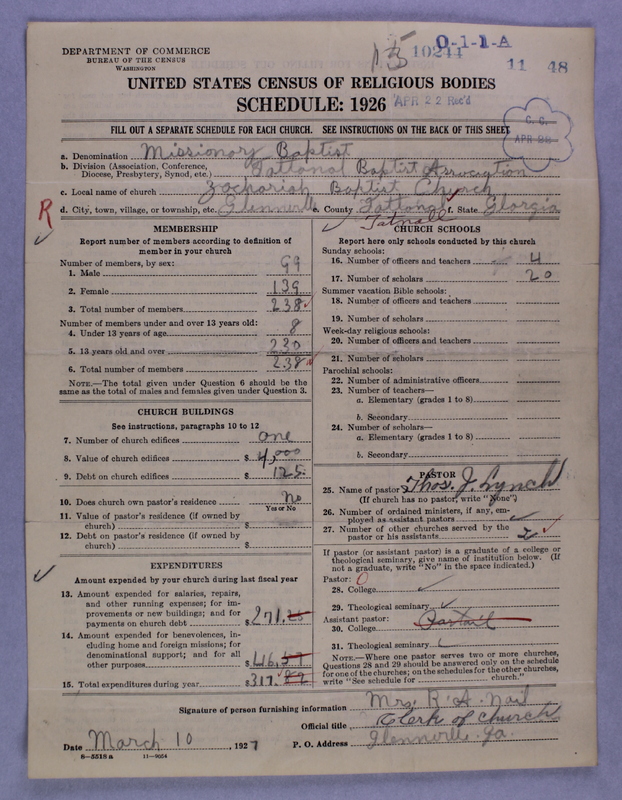 DEPARTMENT OF COMMERCE
BUREAU OF THE CENSUS
WASHINGTON
10244
O-1-1-A
11 48
UNITED STATES CENSUS OF RELIGIOUS BODIES
SCHEDULE: 1926
APR 22 Rec'd
C. C.
FILL OUT A SEPARATE SCHEDULE FOR EACH CHURCH. SEE INSTRUCTIONS ON THE BACK OF THIS SHEET
a. Denomination Missionary Baptist
b. Division (Association, Conference,
Diocese, Presbytery, Synod, etc.) Tattonal Baptist Association
c. Local name of church Zachariah Baptist Church
R
d. City, town, village, or township, etc. Glennville e. County Tattonal f. State Georgia
Tatnall
MEMBERSHIP
Report number of members according to definition of
member in your church
Number of members, by sex:
1. Male 99
2. Female 139
3. Total number of members 238
Number of members under and over 13 years old:
4. Under 13 years of age 8
5. 13 years old and over 230
6. Total number of members 238
NOTE.—The total given under Question 6 should be the
same as the total of males and females given under Question 3.
CHURCH BUILDINGS
See instructions, paragraphs 10 to 12
7. Number of church edifices one
8. Value of church edifices $ 4,000
9. Debt on church edifices $ 125
10. Does church own pastor's residence no
Yes or No
11. Value of pastor's residence (if owned by
church) $
12. Debt on pastor's residence (if owned by
church) $
EXPENDITURES
Amount expended by your church during last fiscal year
13. Amount expended for salaries, repairs,
and other running expenses; for im-
provements or new buildings; and for
payments on church debt $ 271.25
14. Amount expended for benevolences, in-
cluding home and foreign missions; for
denominational support; and for all
other purposes $ 46.57
15. Total expenditures during year $ 317.82
CHURCH SCHOOLS
Report here only schools conducted by this church
Sunday schools:
16. Number of officers and teachers 4
17. Number of scholars 20
Summer vacation Bible schools:
18. Number of officers and teachers
19. Number of scholars
Week-day religious schools:
20. Number of officers and teachers
21. Number of scholars
Parochial schools:
22. Number of administrative officers
23. Number of teachers—
a. Elementary (grades 1 to 8)
b. Secondary
24. Number of scholars—
a. Elementary (grades 1 to 8)
b. Secondary
PASTOR
25. Name of pastor Thos. J. Lynch
(If church has no pastor, write "None")
26. Number of ordained ministers, if any, em-
ployed as assistant pastors
27. Number of other churches served by the
pastor or his assistants 2
If pastor (or assistant pastor) is a graduate of a college or
theological seminary, give name of institution below. (If
not a graduate, write "No" in the space indicated.)
Pastor: 0
28. College
29. Theological seminary
Assistant pastor:
30. College
31. Theological seminary
NOTE.—Where one pastor serves two or more churches,
Questions 28 and 29 should be answered only on the schedule
for one of the churches; on the schedules for the other churches,
write "See schedule for church."
Signature of person furnishing information Mrs. R. A. Nail
Official title Clerk of church
Date March 10, 1927 P. O. Address Glennville Ga.
8-5518a 11-9054